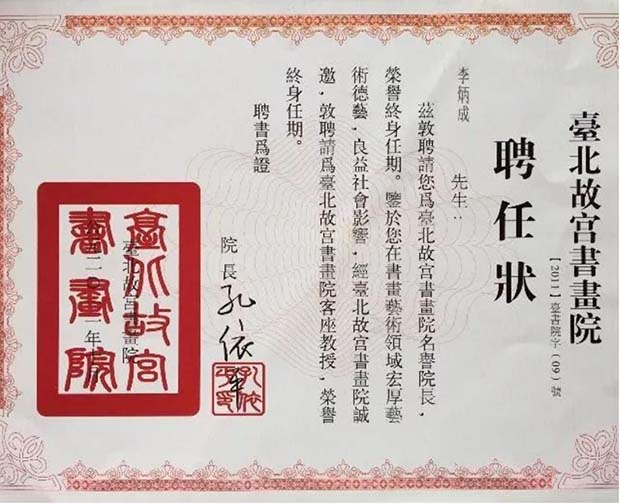 臺北故宫書畫院
【2011】臺書院字(09)號
聘任狀
李炳成
先生：
茲敦聘請您爲臺北故宫書畫院名譽院長，
榮譽終身任期。鑒於您在書畫藝術領域宏厚藝
術德藝，良益社會影響，經臺北故宫書畫院誠
邀，敦聘請爲臺北故宫書畫院客座教授，榮譽
終身任期。
聘書爲證
院長
孔依平
臺北故宫書畫院
臺北故宫
書畫院